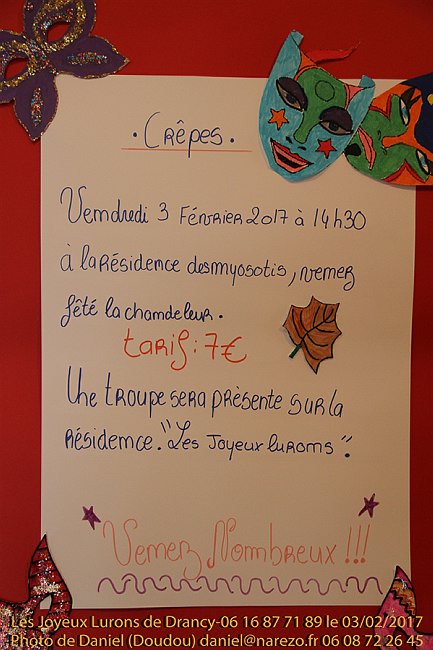 . Crêpes .
Vendredi 3 Février 2017 à 14h30
à la Résidence des myosotis, venez
fêté la chandeleur.
tarif : 7€
Une troupe sera présente sur la
résidence. "Les Joyeux lurons".
Venez Nombreux !!!
Les Joyeux Lurons de Drancy-06 16 87 71 89 le 03/02/2017
Photo de Daniel (Doudou) daniel@narezo.fr 06 08 72 26 45